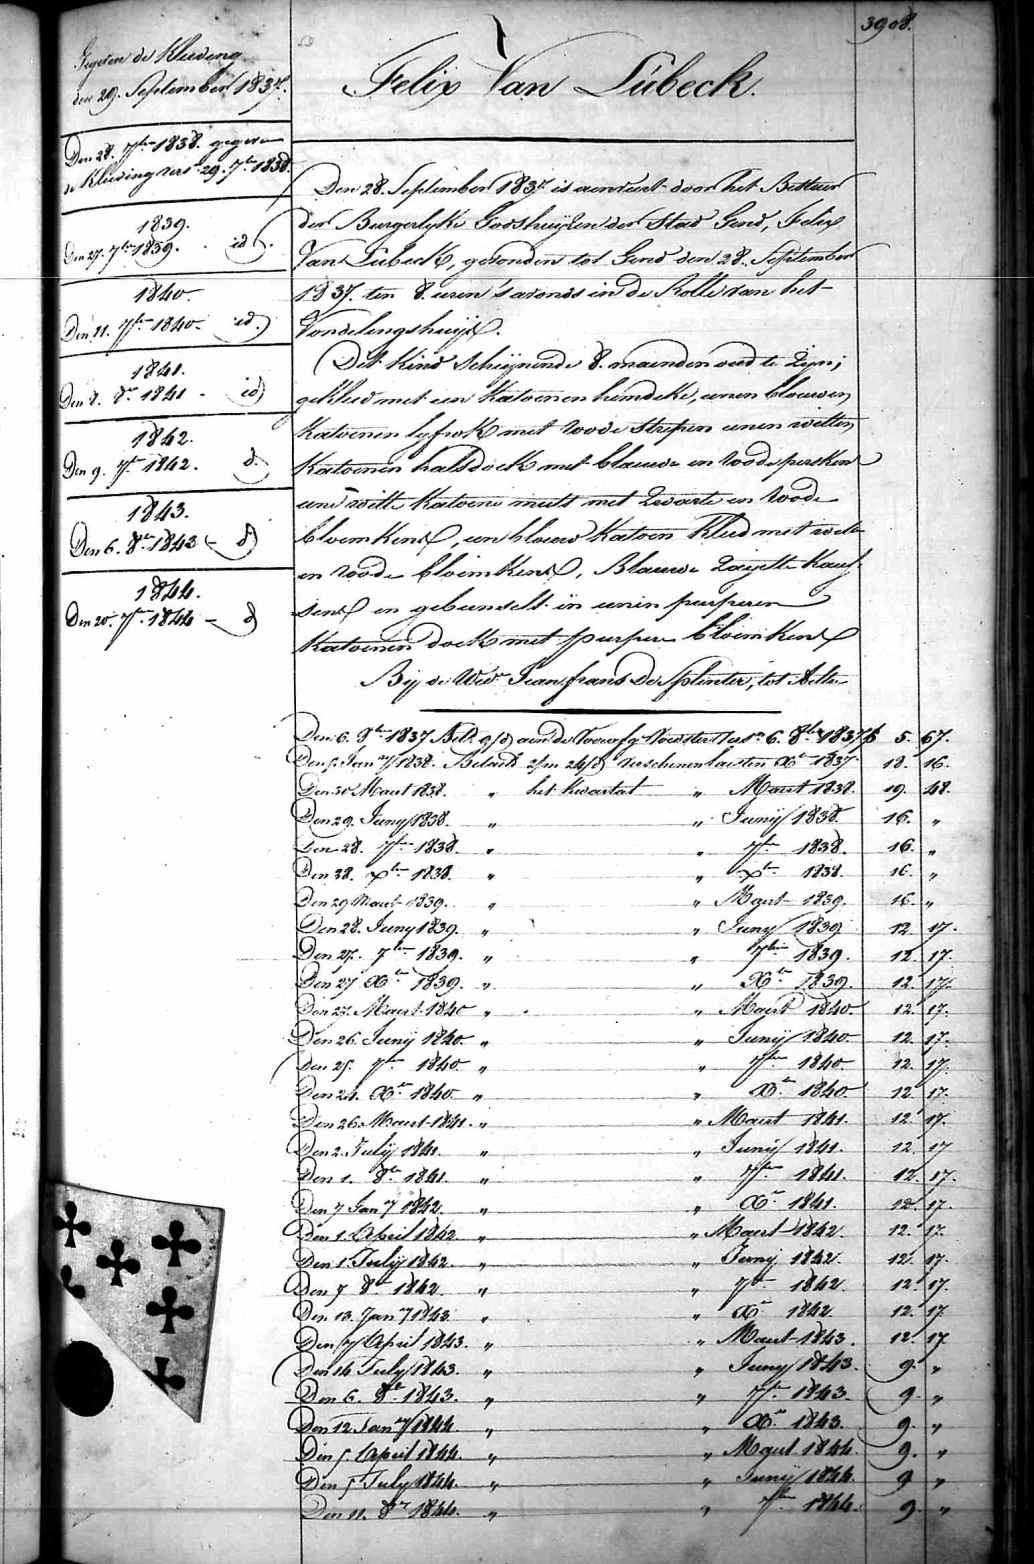 3908.
Felix Van Lubeck.
Gegeven de Kleeding
den 29. September 1837.
Den 28. 7ber 1838. gegeven
de Kleeding vers. 29. 7br 1838.
1839.
Den 27. 7br 1839. id
1840.
Den 11. 7br 1840. id.
1841.
Den 8. 8br 1841 - id
1842.
Den 9. 7br 1842. d.
1843.
Den 6. 8br 1843 - d
1844.
Den 20. 7br 1844 - d
Den 28. September 1837 is aenveert door het Bestuer
der Burgerlyke Godshuijzen der Stad Gend, Felix
Van Lubeck, gevonden tot Gend den 28. September
1837. ten 8. uren 's avonds in de Rolle van het
Vondelingshuijs.
Dit Kind scheijnende 8. maenden oud te zijn;
gekleed met een Katoenen hemdeke, eenen blauwen
Katoenen lyfrok met roode strepen eenen witten
Katoenen halsdoek met blauwe en roode perkens
eene witte Katoene muts met zwarte en roode
bloemkens, een blauw Katoen Kleed met witte
en roode bloemkens, Blauwe Kaus-
sens en gebunselt in eenen purperen
Katoenen doek met purpere bloemkens
Bij de Wed.e Jean frans De Splenter, tot Aelter
Den 6. 8br 1837 aen de 6. 8br 1837 f 5. 67.
Den 5. Jan.y 1838. Betaeld verschenen laesten Xr 1837 18. 16.
Den 30 Maert 1838. " het Kwartael " Maert 1838. 19. 48.
Den 29. Junij 1838. " " Junij 1838. 16. "
Den 28. 7br 1838. " " 7br 1838. 16. "
Den 38. Xbr 1838. " " Xbr 1838. 16. "
Den 29 Maert 1839. " " Maert 1839. 16. "
Den 28. Juny 1839. " " Juny 1839 12. 17.
Den 27. 7br 1839. " " 7br 1839. 12. 17.
Den 27 Xbr 1839. " " Xbr 1839. 12. 17.
Den 27. Maert 1840 " " Maert 1840. 12. 17.
Den 26. Junij 1840. " " Junij 1840. 12. 17.
Den 25. 7br 1840. " " 7br 1840. 12. 17.
Den 24. Xbr 1840. " " Xbr 1840 12. 17.
Den 26. Maert 1841. " " Maert 1841. 12. 17.
Den 2. Julij 1841. " " Junij 1841. 12. 17
Den 1. 8br 1841. " " 7br 1841. 12. 17.
Den 7 Jan.y 1842. " " Xr 1841. 12. 17.
Den 1. April 1842 " " Maert 1842. 12. 17.
Den 1. Julij 1842. " " Junij 1842. 12. 17.
Den 7 8br 1842. " " 7br 1842. 12. 17.
Den 13. Jan.y 1843. " " Xr 1842. 12. 17
Den 7 April 1843. " " Maert 1843. 12. 17
Den 14. July 1843. " " Juny 1843. 9. "
Den 6. 8br 1843. " " 7br 1843 9. "
Den 12. Jan.y 1844 " " Xr 1843. 9. "
Den 5 April 1844. " " Maert 1844. 9. "
Den 5 July 1844. " " Junij 1844. 9 "
Den 11. 8br 1844. " " 7br 1844. 9. "